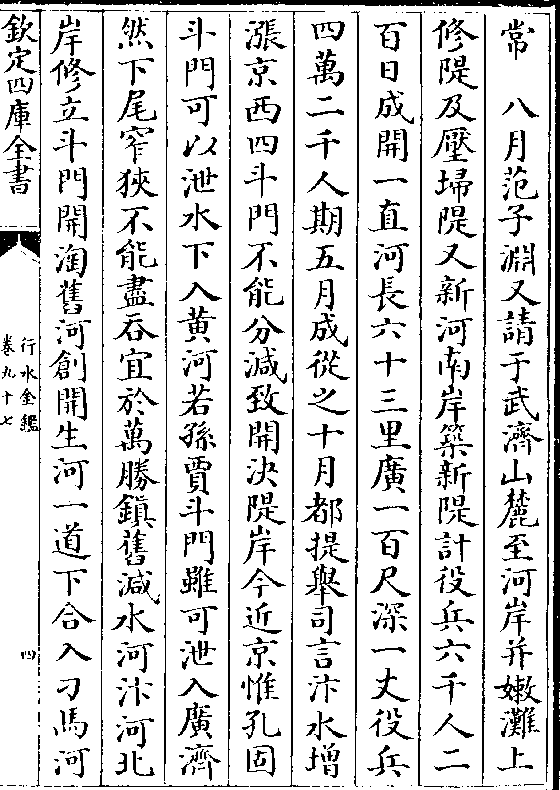 常　八月范子淵又請于武濟山麓至河岸并嫩灘上
修隄及壓埽隄又新河南岸築新隄計役兵六千人二
百日成開一直河長六十三里廣一百尺深一丈役兵
四萬二千人期五月成從之十月都提舉司言汴水增
漲京西四斗門不能分減致開決隄岸今近京惟孔固
斗門可以泄水下入黃河若孫賈斗門雖可泄入廣濟
然下尾窄狹不能盡吞宜於萬勝鎮舊減水河汴河北
岸修立斗門開淘舊河創開生河一道下合入刁馬河
欽定四庫全書
行水金鑑
卷九十七
四